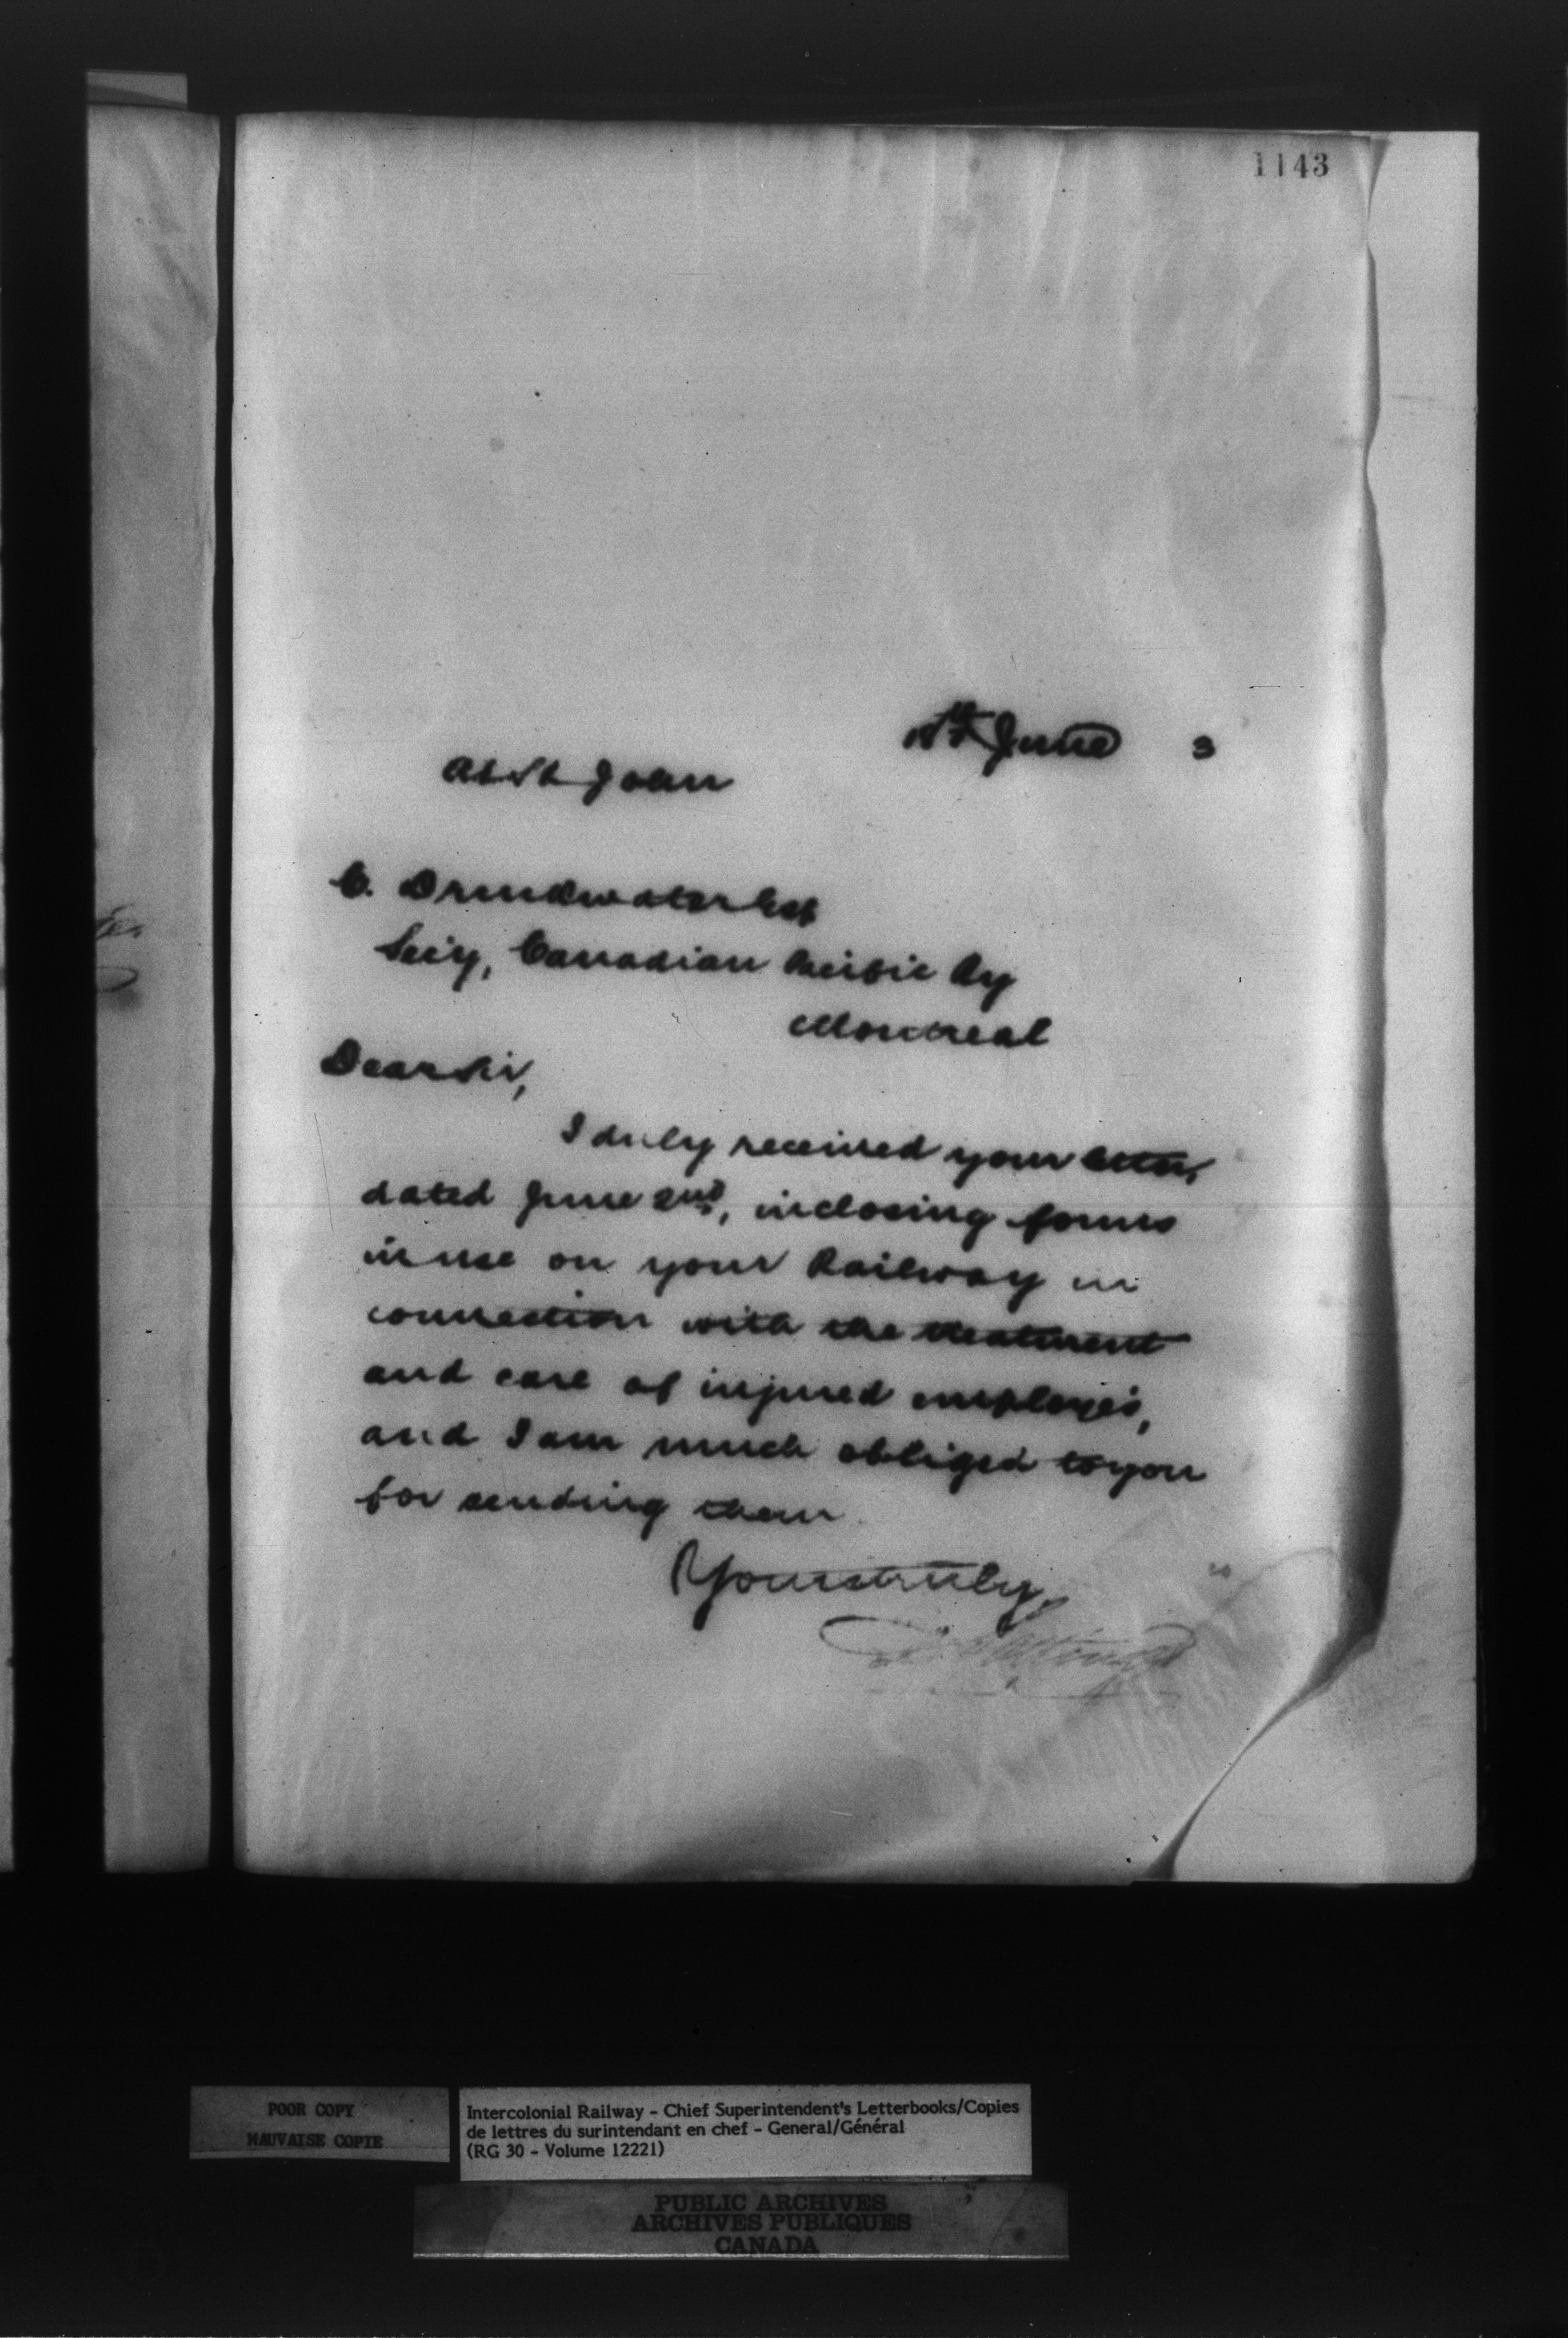 1143
June 3
At St John
C. Drinkwater Esq
Sec'y, Canadian Pacific Ry
Montreal
Dear Sir,
I duly received your letter,
dated June 2nd, inclosing forms
in use on your Railway in
connection with the treatment
and care of injured employés,
and I am much obliged to you
for sending them.
Yours truly,
POOR COPY
MAUVAISE COPIE
Intercolonial Railway - Chief Superintendent's Letterbooks/Copies
de lettres du surintendant en chef - General/Général
(RG 30 - Volume 12221)
PUBLIC ARCHIVES
ARCHIVES PUBLIQUES
CANADA